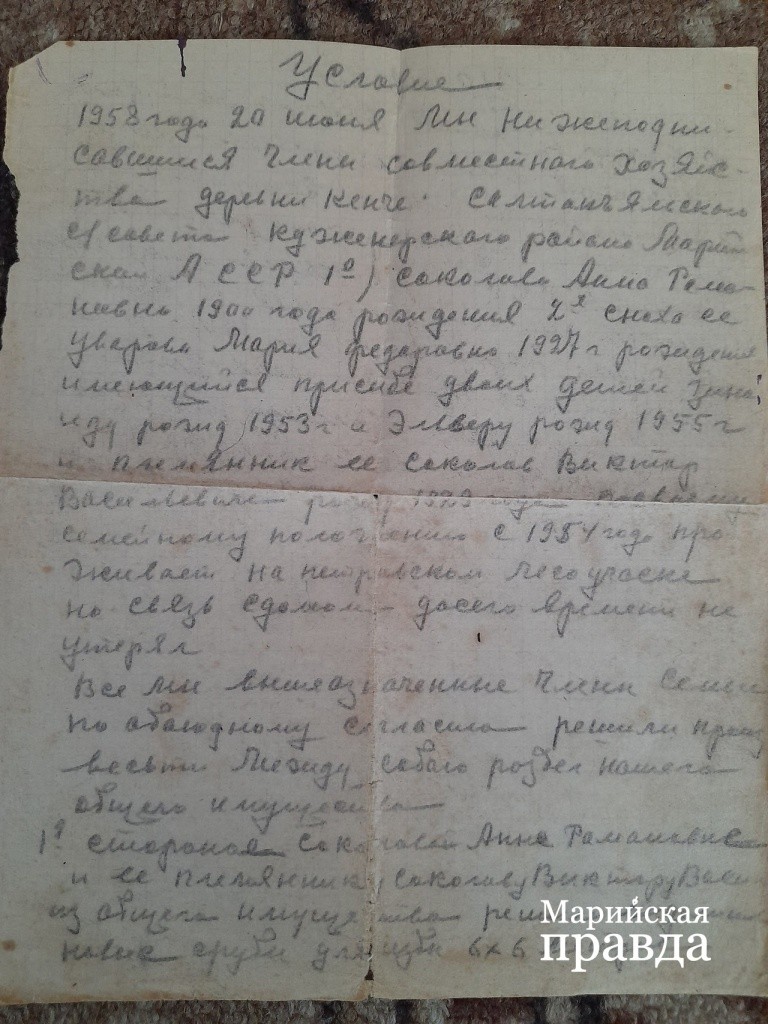 Условие
1958 года 20 июня Мы нижеподпи-
савшиеся Члены совместного Хозяйс-
тва деревни Кенче Салтакъялского
С/совета Куженерского района Марий
ской АССР 1й) Соколова Анна Рама-
новна 1900 года рождения 2я сноха ее
Уварова Мария Федаровна 1927 г рождения
имеющийся присебе двоих детей Зина
иду рожд 1953 г и Эльверу рожд 1955 г
и племянник ее Соколов Виктар
Васильевич рожд 1929 года
семейному положению с 1954 года про
живает на петравском лесоучаске
но связь сдомом досего времени не
утерял
Все мы вышеозначенные Члены Семьи
по абаюдному согласию решили произ
весьти Между собаю раздел нашега
общего имущества
1я сторона Соколова Анна Рамановна
и ее племянник Соколову Виктару Васи
из общего имущества
новые срубы для избы 6х6
Марийская
правда